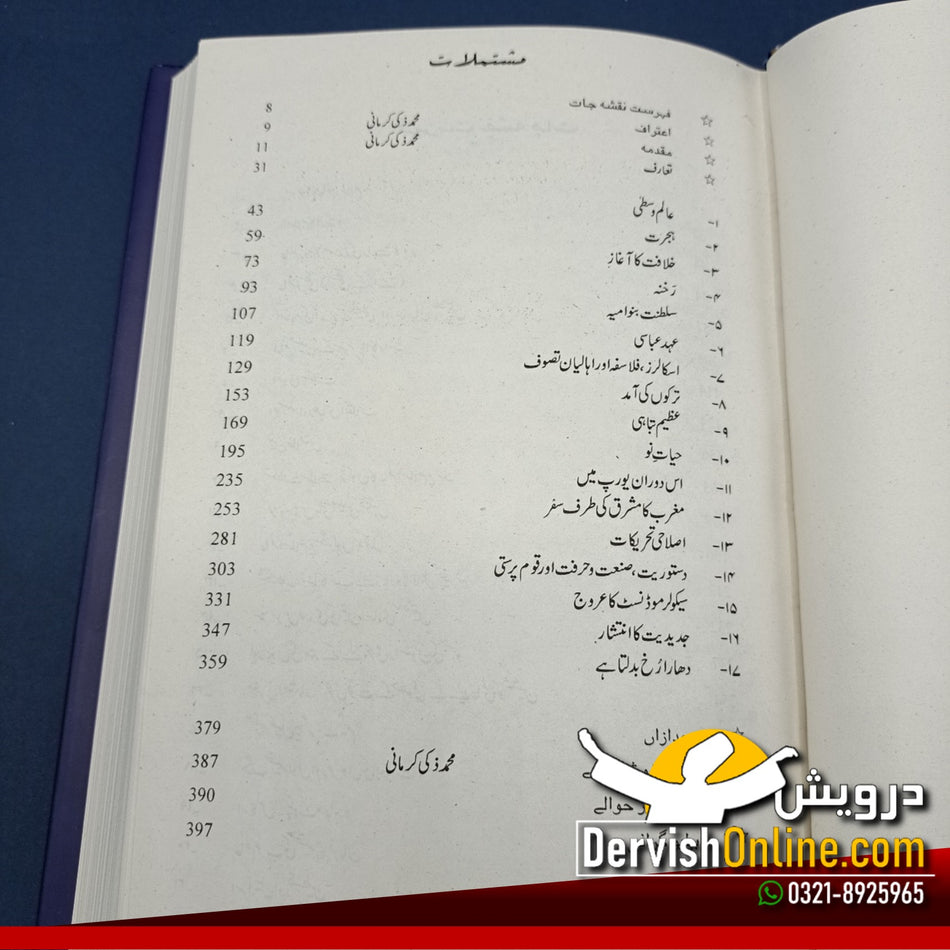 مشتملات
☆ فہرست نقشہ جات 8
☆ اعتراف محمد ذکی کرمانی 9
☆ مقدمہ محمد ذکی کرمانی 11
☆ تعارف 31
۱- عالم وسطیٰ 43
۲- ہجرت 59
۳- خلافت کا آغاز 73
۴- رخنہ 93
۵- سلطنت بنوامیہ 107
۶- عہد عباسی 119
۷- اسکالرز، فلاسفہ اور اہالیان تصوف 129
۸- ترکوں کی آمد 153
۹- عظیم تباہی 169
۱۰- حیاتِ نو 195
۱۱- اس دوران یورپ میں 235
۱۲- مغرب کا مشرق کی طرف سفر 253
۱۳- اصلاحی تحریکات 281
۱۴- دستوریت، صنعت و حرفت اور قوم پرستی 303
۱۵- سیکولر موڈنسٹ کا عروج 331
۱۶- جدیدیت کا انتشار 347
۱۷- دھارا رُخ بدلتا ہے 359
379
محمد ذکی کرمانی 387
حوالے 390
397
درویش
DervishOnline.com
0321-8925965